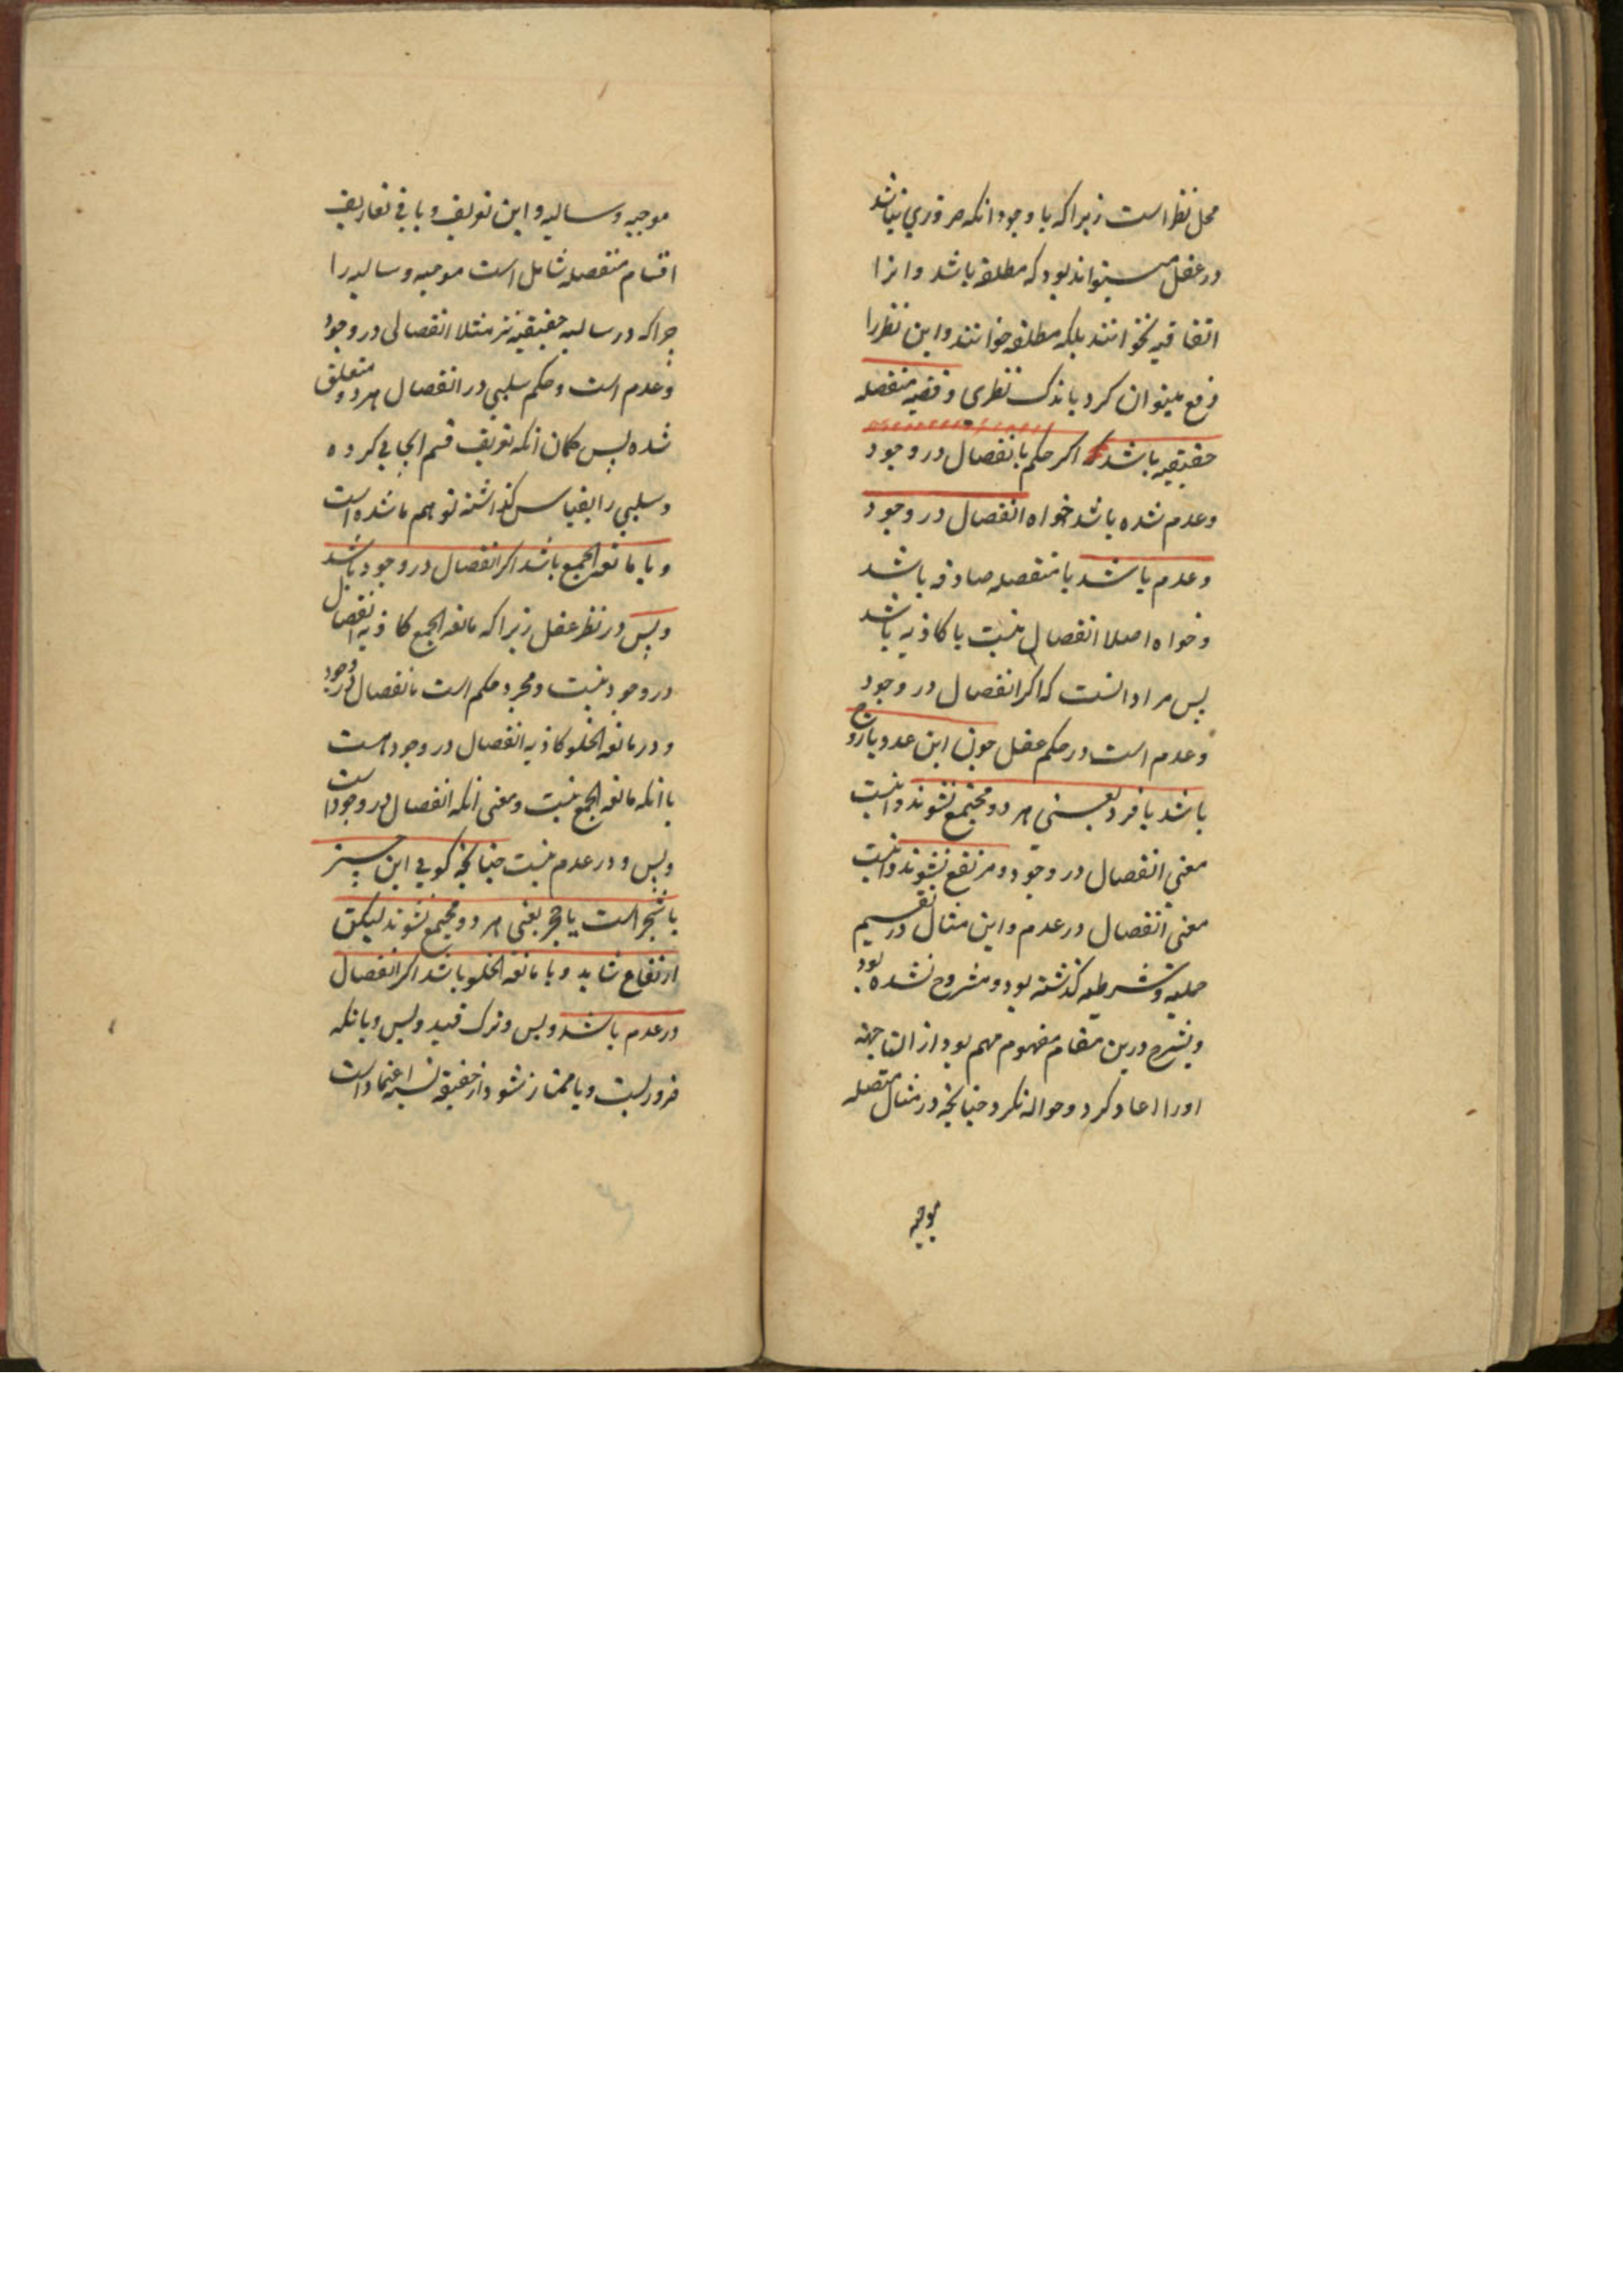 محل نظر است زیرا که با وجود انکه ضروری نباشد
در عقل میتواند بود که مطلقه باشد و انرا
اتفاقیه نخوانند بلکه مطلقه خوانند و این نظر را
رفع میتوان کرد باندک نظری و قضیه منفصله
حقیقیه باشد اگر حکم بانفصال در وجود
وعدم شده باشد خواه انفصال در وجود
وعدم باشد یا منفصله صادقه باشد
وخواه اصلا انفصال نیست یا کاذبه باشد
پس مراد انست که اگر انفصال در وجود
وعدم است در حکم عقل چون این عدد یا زوج
باشد یا فرد یعنی هر دو مجتمع نشوند و اینست
معنی انفصال در وجود و مرتفع نشوند و اینست
معنی انفصال در عدم و این مثال در تقسیم
حملیه و شرطیه گذشته بود و مشروح نشده بود
وبشرح درین مقام مفهوم مهم بود از
اورا اعاد کرد و حواله نکرد چنانچه در مثال متصله
موجبه
موجبه و سالبه و این تعریف و باقی تعاریف
اقسام منفصله شامل است موجبه و سالبه را
چرا که در سالبه حقیقیه نیز مثلا انفصالی در وجود
وعدم است و حکم سلبی در انفصال هر دو متعلق
شده پس گمان انکه تعریف قسم ایجابی کرده
وسلبی را بقیاس گذاشته توهم شده است
و یا مانعة الجمع باشد اگر انفصال در وجود باشد
وبس در نظر عقل زیرا که مانعة الجمع کاذبه انفصال
در وجود نیست و مجرد حکم است بانفصال در وجود
و در مانعة الخلو کاذبه انفصال در وجود هست
با انکه مانعة الجمع نیست و معنی انکه انفصال در وجود است
وبس و در عدم نیست چنانچه گویی این چیز
یا شجر است یا حجر یعنی هر دو مجتمع نشوند لیکن
ارتفاع شاید و یا مانعة الخلو باشد اگر انفصال
در عدم باشد وبس و ترک قید وبس و یا انکه
ضروریست و یا ممتاز نشود از حقیقیه اعتماد است